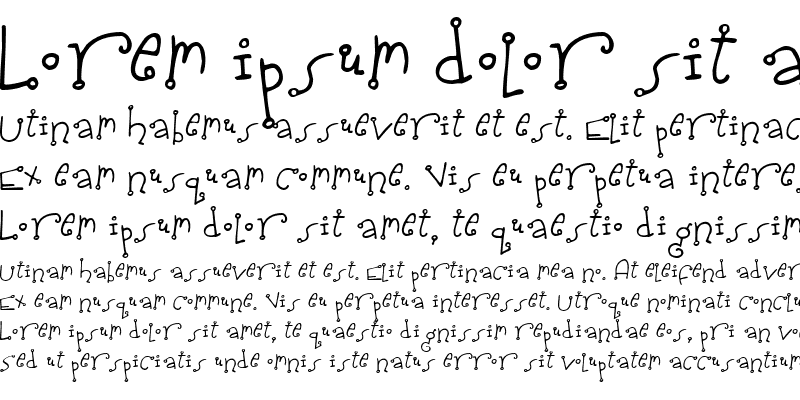 Lorem ipsum dolor sit a
Utinam habemus assueverit et est. Elit pertinac
Ex eam nusquam commune. Vis eu perpetua intere
Lorem ipsum dolor sit amet, te quaestio dignissim
Utinam habemus assueverit et est. Elit pertinacia mea no. At eleifend adver
Ex eam nusquam commune. Vis eu perpetua interesset. Utroque nominati conclu
Lorem ipsum dolor sit amet, te quaestio dignissim repudiandae eos, pri an vo
Sed ut perspiciatis unde omnis iste natus error sit voluptatem accusantium